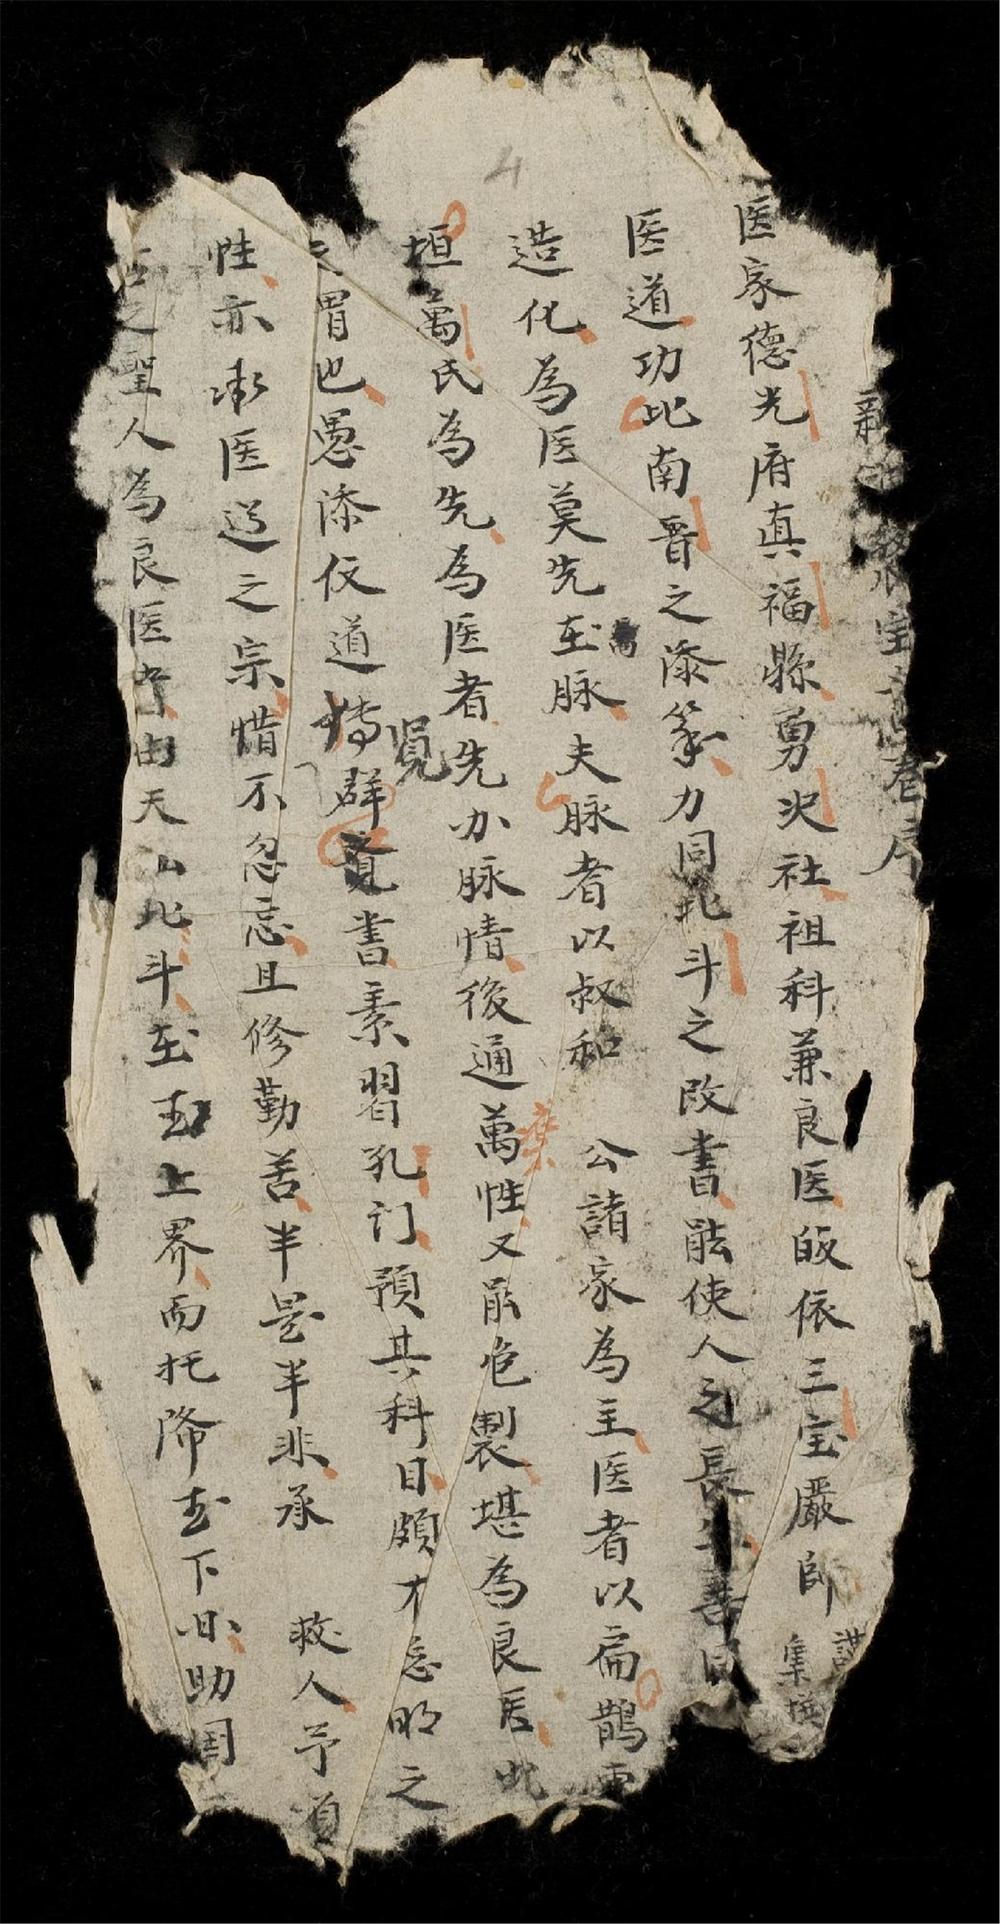 新宝春序
医家德光府真福縣勇决社祖科兼良医皈依三宝嚴師
謹
集撰
医道功比南晋之添筭力同北斗之改書能使人之長善同
造化為医莫先於脉夫脉者以叔和公諸家為主医者以扁鵲
萬
垣萬氏為先為医者先办脉情後通萬性又能危製堪為良医此
棄
之謂也愚添仅道博群覚書素習孔门預其科目頗才忘明之
覓
性亦承医道之宗惜不忽忘且修勤苦半是半非承救人予
之聖人為良医由天山北斗在玉上界而托降玉下助国
4